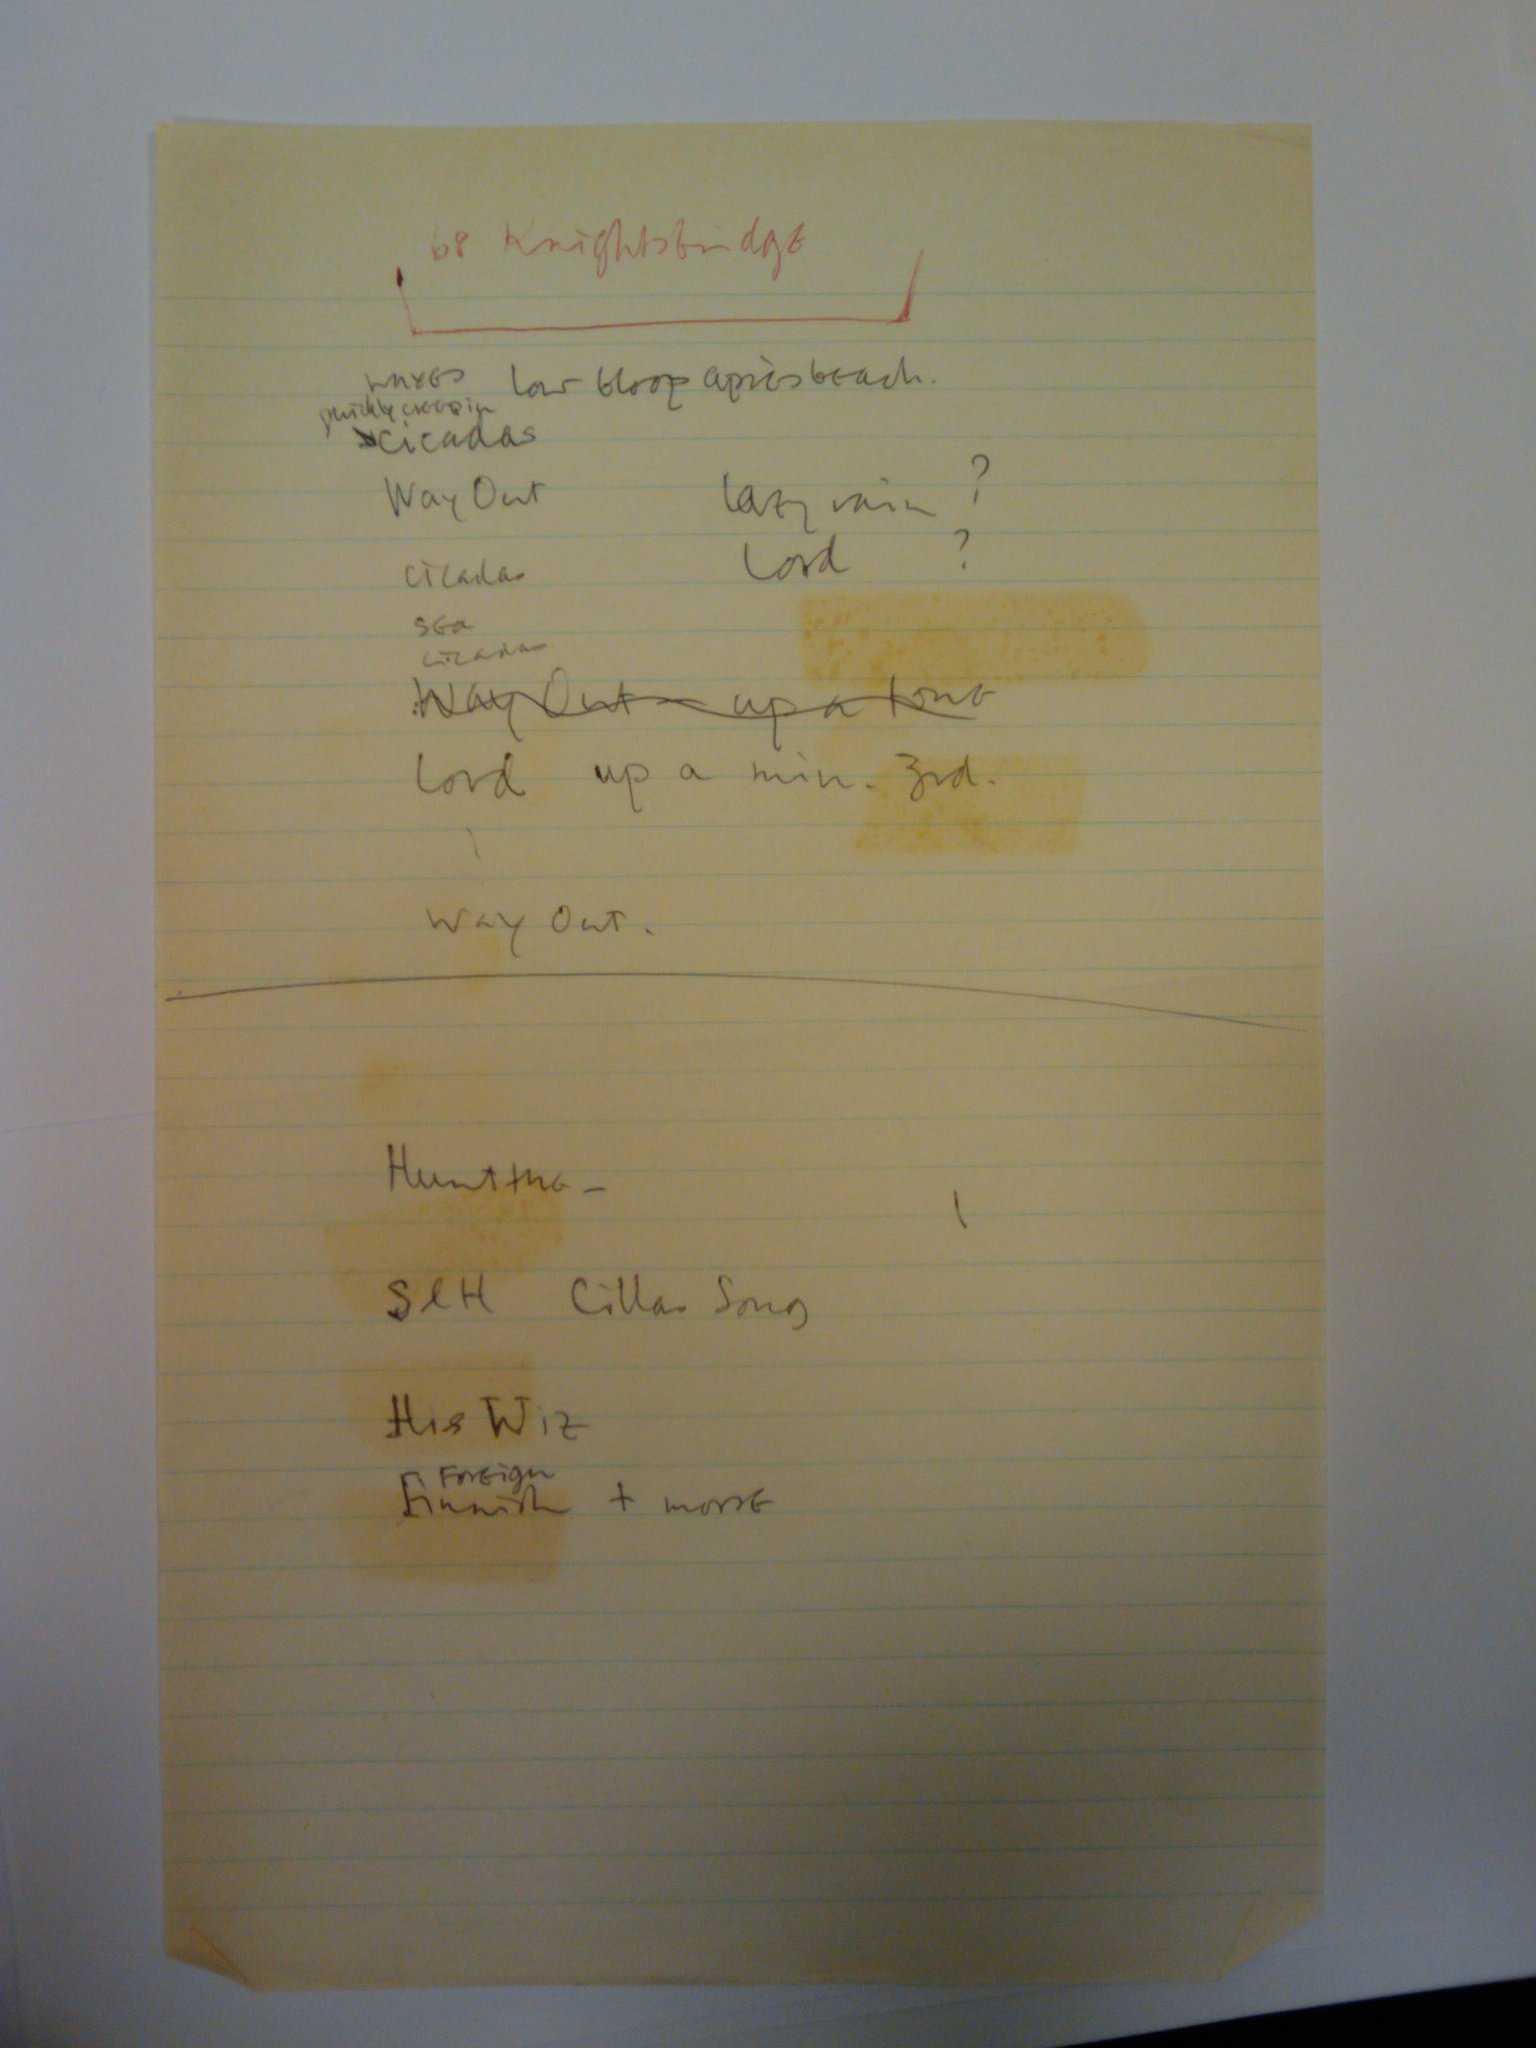 68 Knightsbridge
waves low bloop après beach.
quickly creep in
cicadas
Way Out lazy rain ?
cicadas Lord ?
sea
cicadas
Way Out – up a tone
Lord up a min. 3rd.
Way Out.
Hunt the –
SLH Cillas Song
His Wiz
Foreign
Finnish + morse